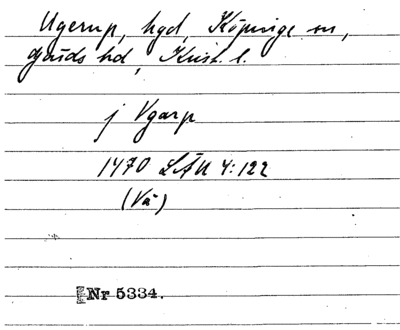 Ugerup, hgd, Köpinge sn,
Gärds hd, Krist. l.
j Vgarp
1470 LÄU 4:122
(Vä)
Nr 5334.